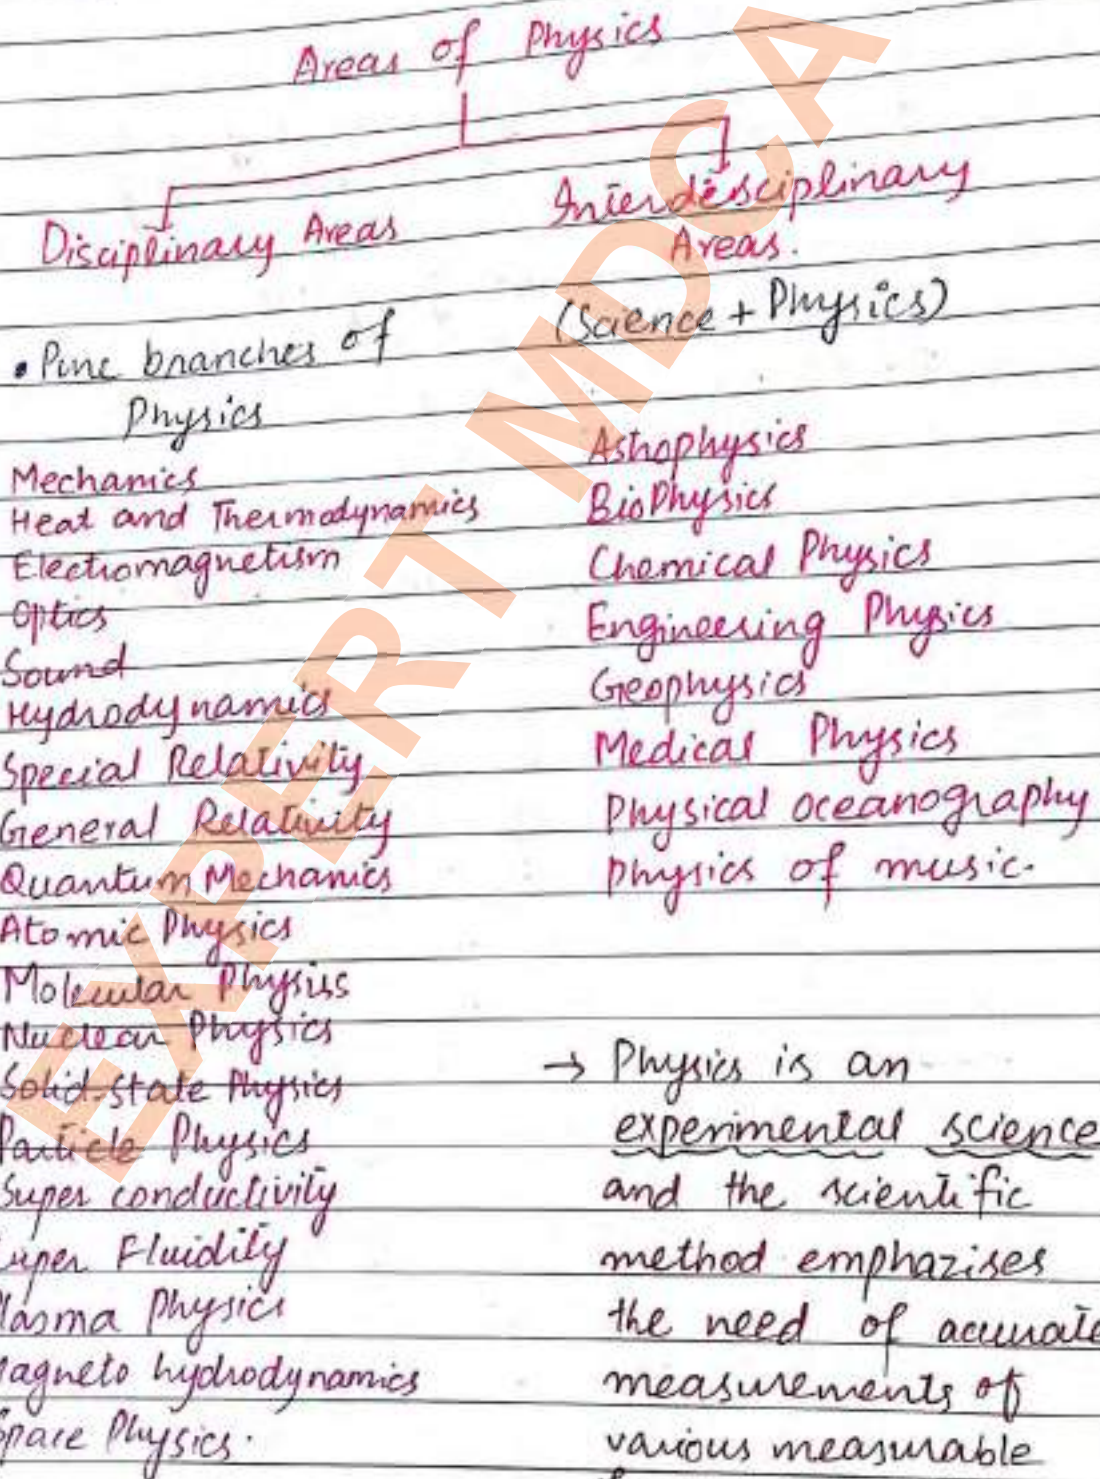 Areas of Physics
Disciplinary Areas
• Pure branches of
Physics
Mechanics
Heat and Thermodynamics
Electromagnetism
Optics
Sound
Hydrodynamics
Special Relativity
General Relativity
Quantum Mechanics
Atomic Physics
Molecular Physics
Nuclear Physics
Solid-state Physics
Particle Physics
Super conductivity
Super Fluidity
Plasma Physics
Magneto hydrodynamics
Space Physics.
Interdisciplinary
Areas.
(Science + Physics)
Astrophysics
BioPhysics
Chemical Physics
Engineering Physics
Geophysics
Medical Physics
Physical oceanography
Physics of music.
→ Physics is an
experimental science
and the scientific
method emphazises
the need of accurate
measurements of
various measurable
EXPERT MDCA